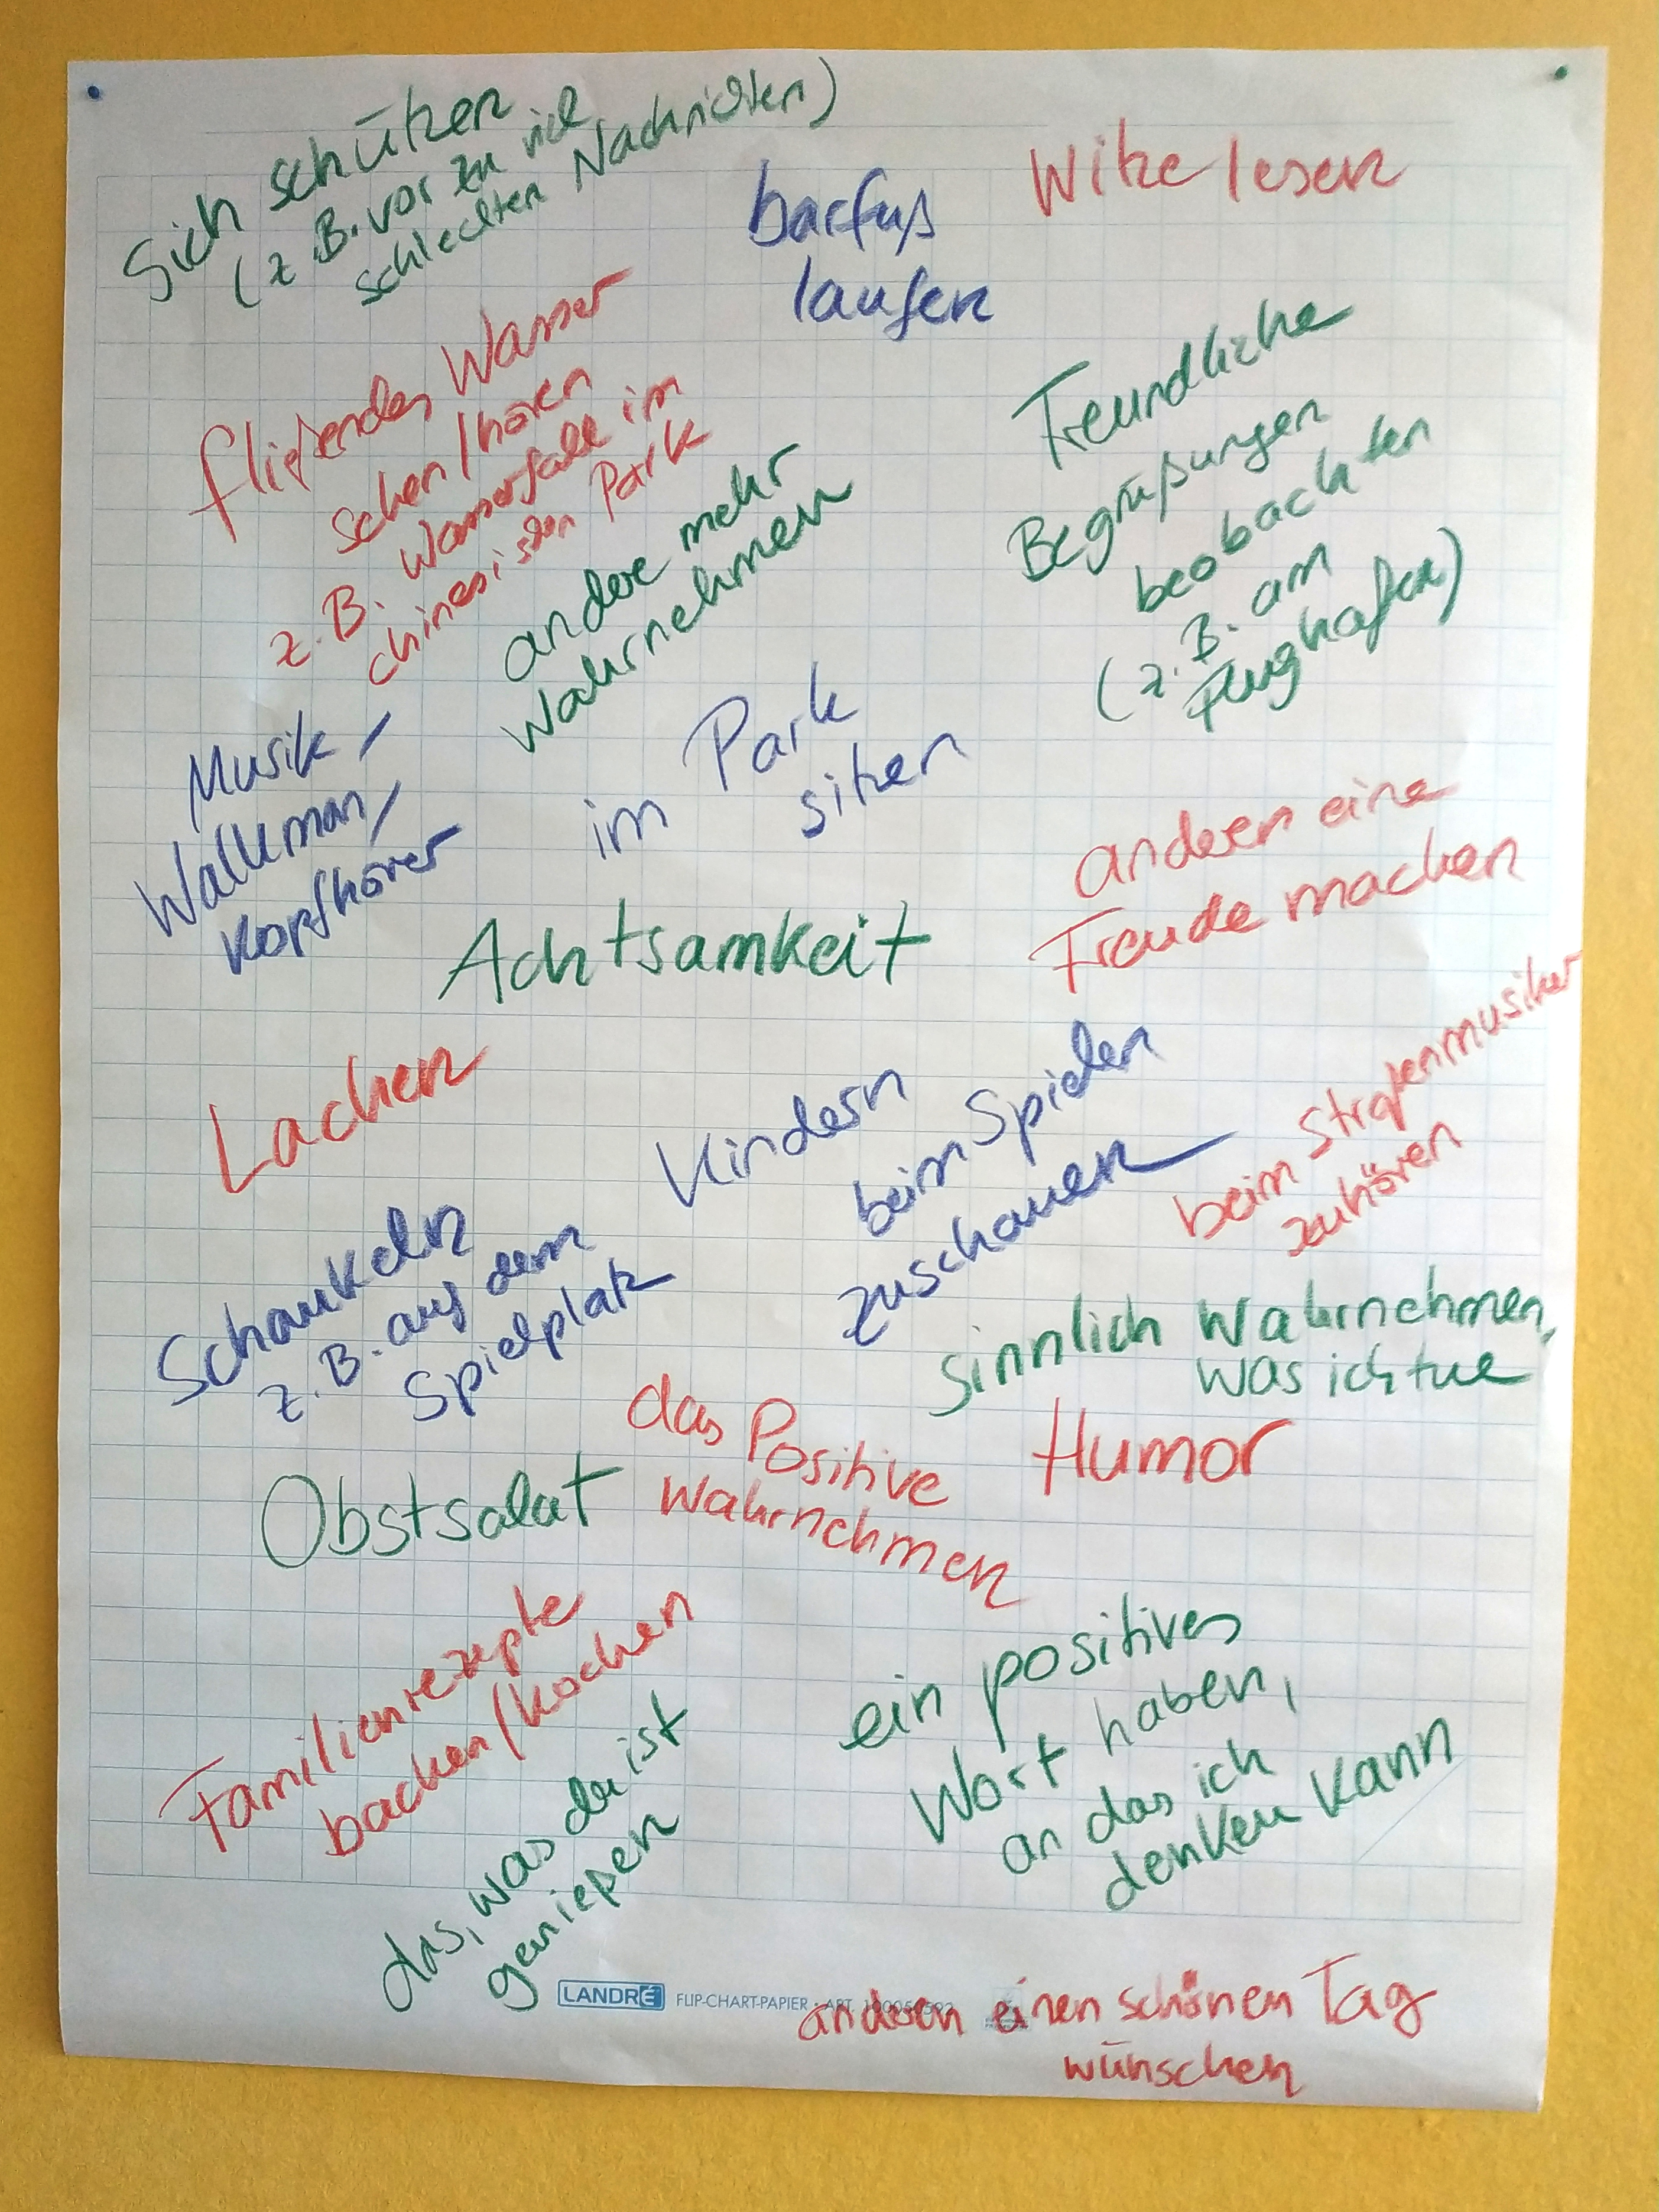 Sich schützen
(z.B. vor zu viel
schlechten Nachrichten)
barfuß
laufen
Witze lesen
fließendes Wasser
sehen/hören
z.B. Wasserfall im
chinesischen Park
andere mehr
wahrnehmen
Freundliche
Begrüßungen
beobachten
(z.B. am
Flughafen)
Musik/
Walkman/
Kopfhörer
im Park
sitzen
anderen eine
Freude machen
Achtsamkeit
Lachen
Kindern
beim Spielen
zuschauen
beim Straßenmusiker
zuhören
Schaukeln
z.B. auf dem
Spielplatz
sinnlich wahrnehmen,
was ich tue
das Positive
wahrnehmen
Humor
Obstsalat
Familienrezepte
backen/kochen
ein positives
Wort haben,
an das ich
denken kann
das, was da ist
genießen
LANDRÉ FLIP-CHART-PAPIER · ART.
anderen einen schönen Tag
wünschen